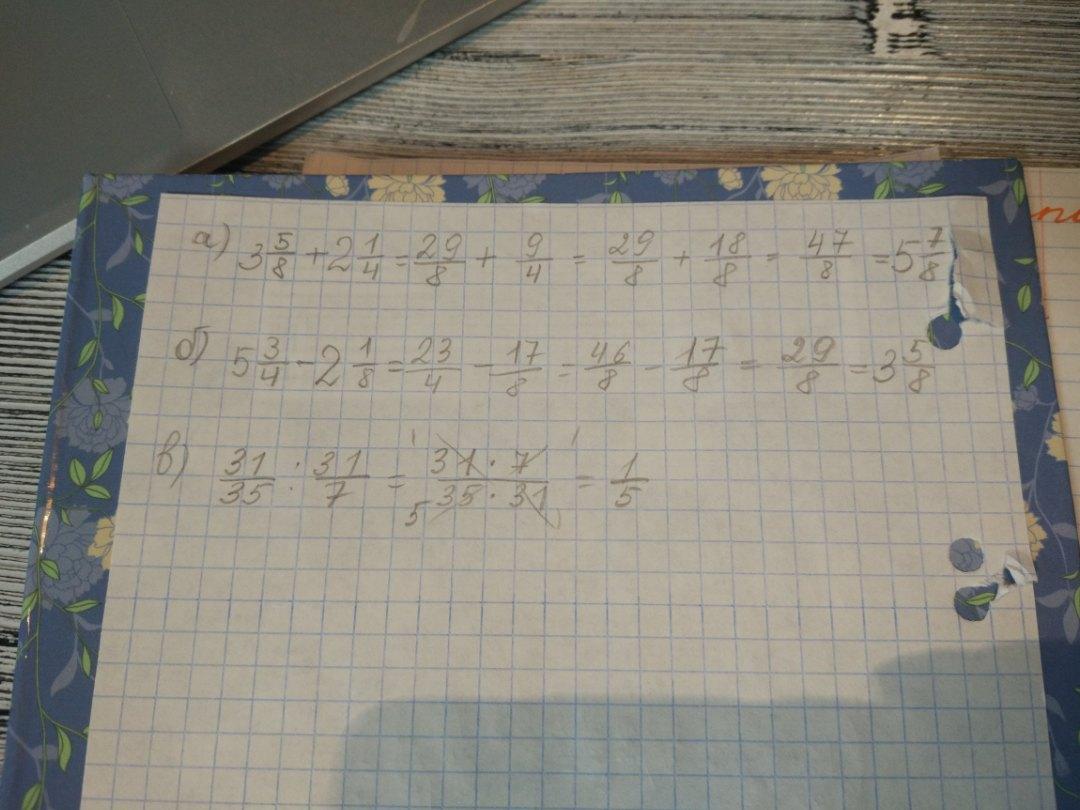 а) 3 5/8 + 2 1/4 = 29/8 + 9/4 = 29/8 + 18/8 = 47/8 = 5 7/8
б) 5 3/4 - 2 1/8 = 23/4 - 17/8 = 46/8 - 17/8 = 29/8 = 3 5/8
в) 31/35 : 31/7 = 31 · 7/35 · 31 = 1/5